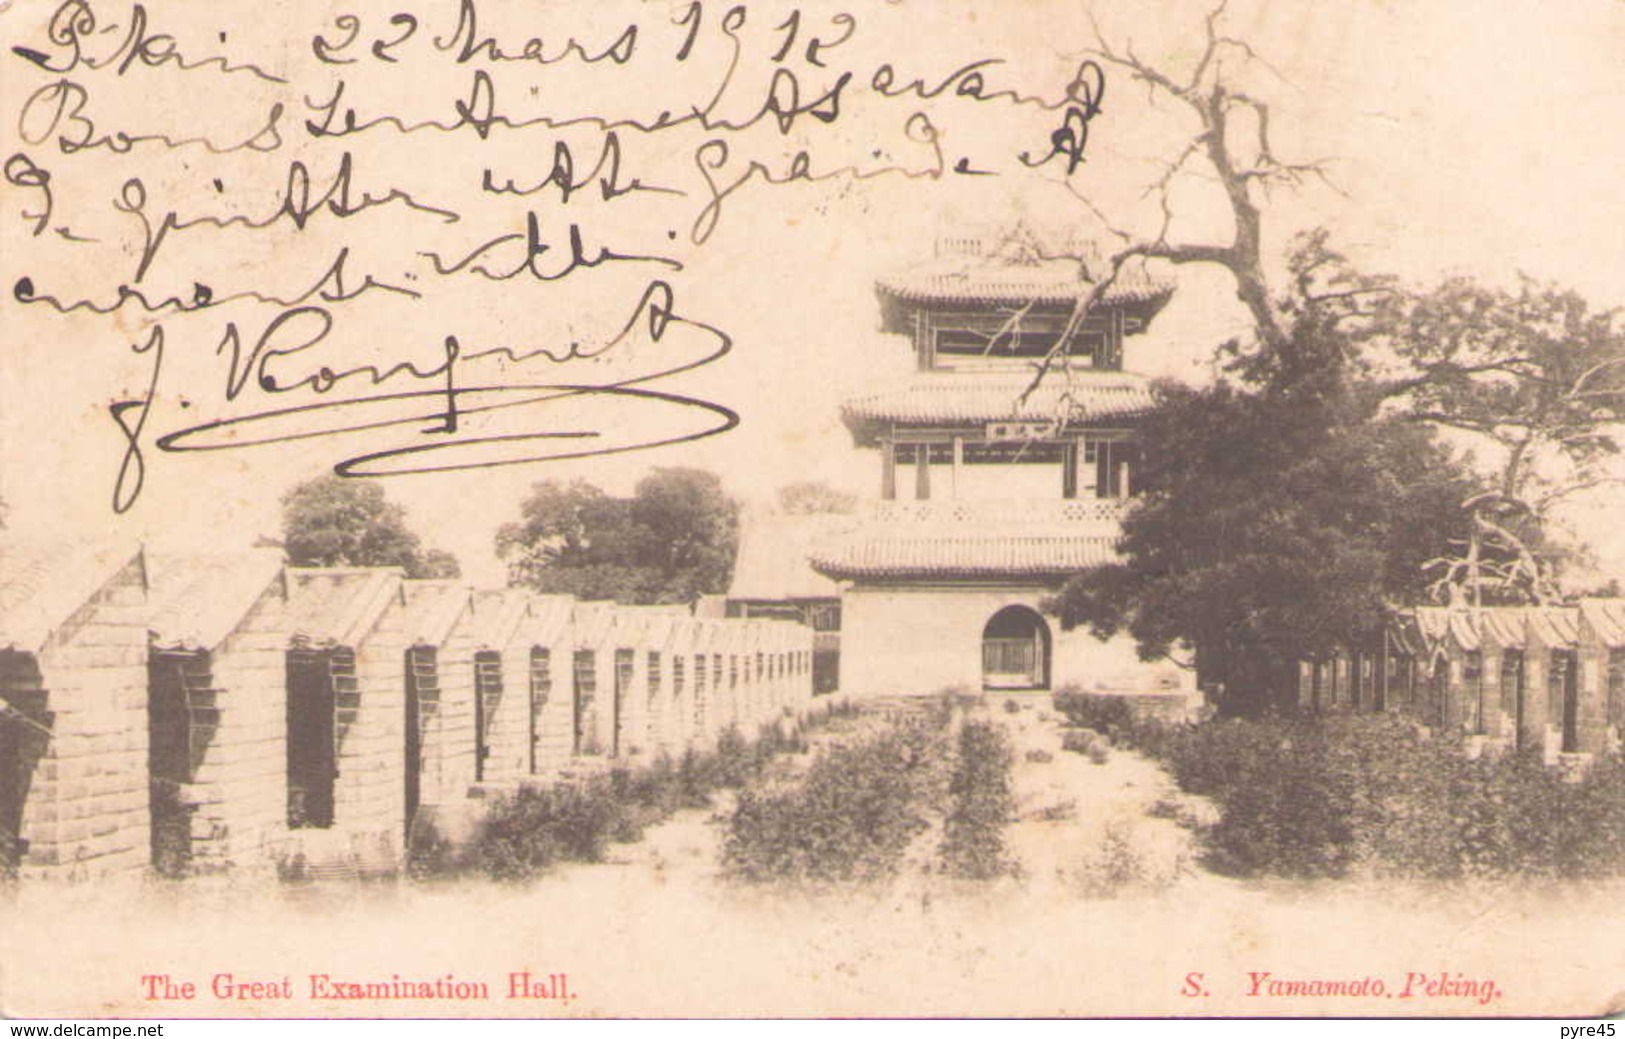 Pékin 22 Mars 1912
Bons sentiments avant
de quitter cette grande et
curieuse ville.
J.
The Great Examination Hall.
S. Yamamoto. Peking.
www.delcampe.net
pyre45